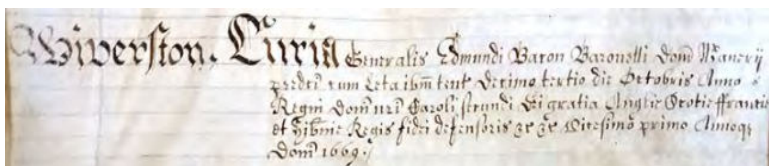 Wiverston. Curia Generalis Edmundi Bacon Baronetti Domi Manerij
predci cum Leta ibm tent Decimo tertio die Octobris Anno
Regni Domi nri Caroli secundi Dei gratia Anglie Scotie ffrancie
et Hibnie Regis fidei defensoris &c Vicesimo primo Annoqz
Domi 1669